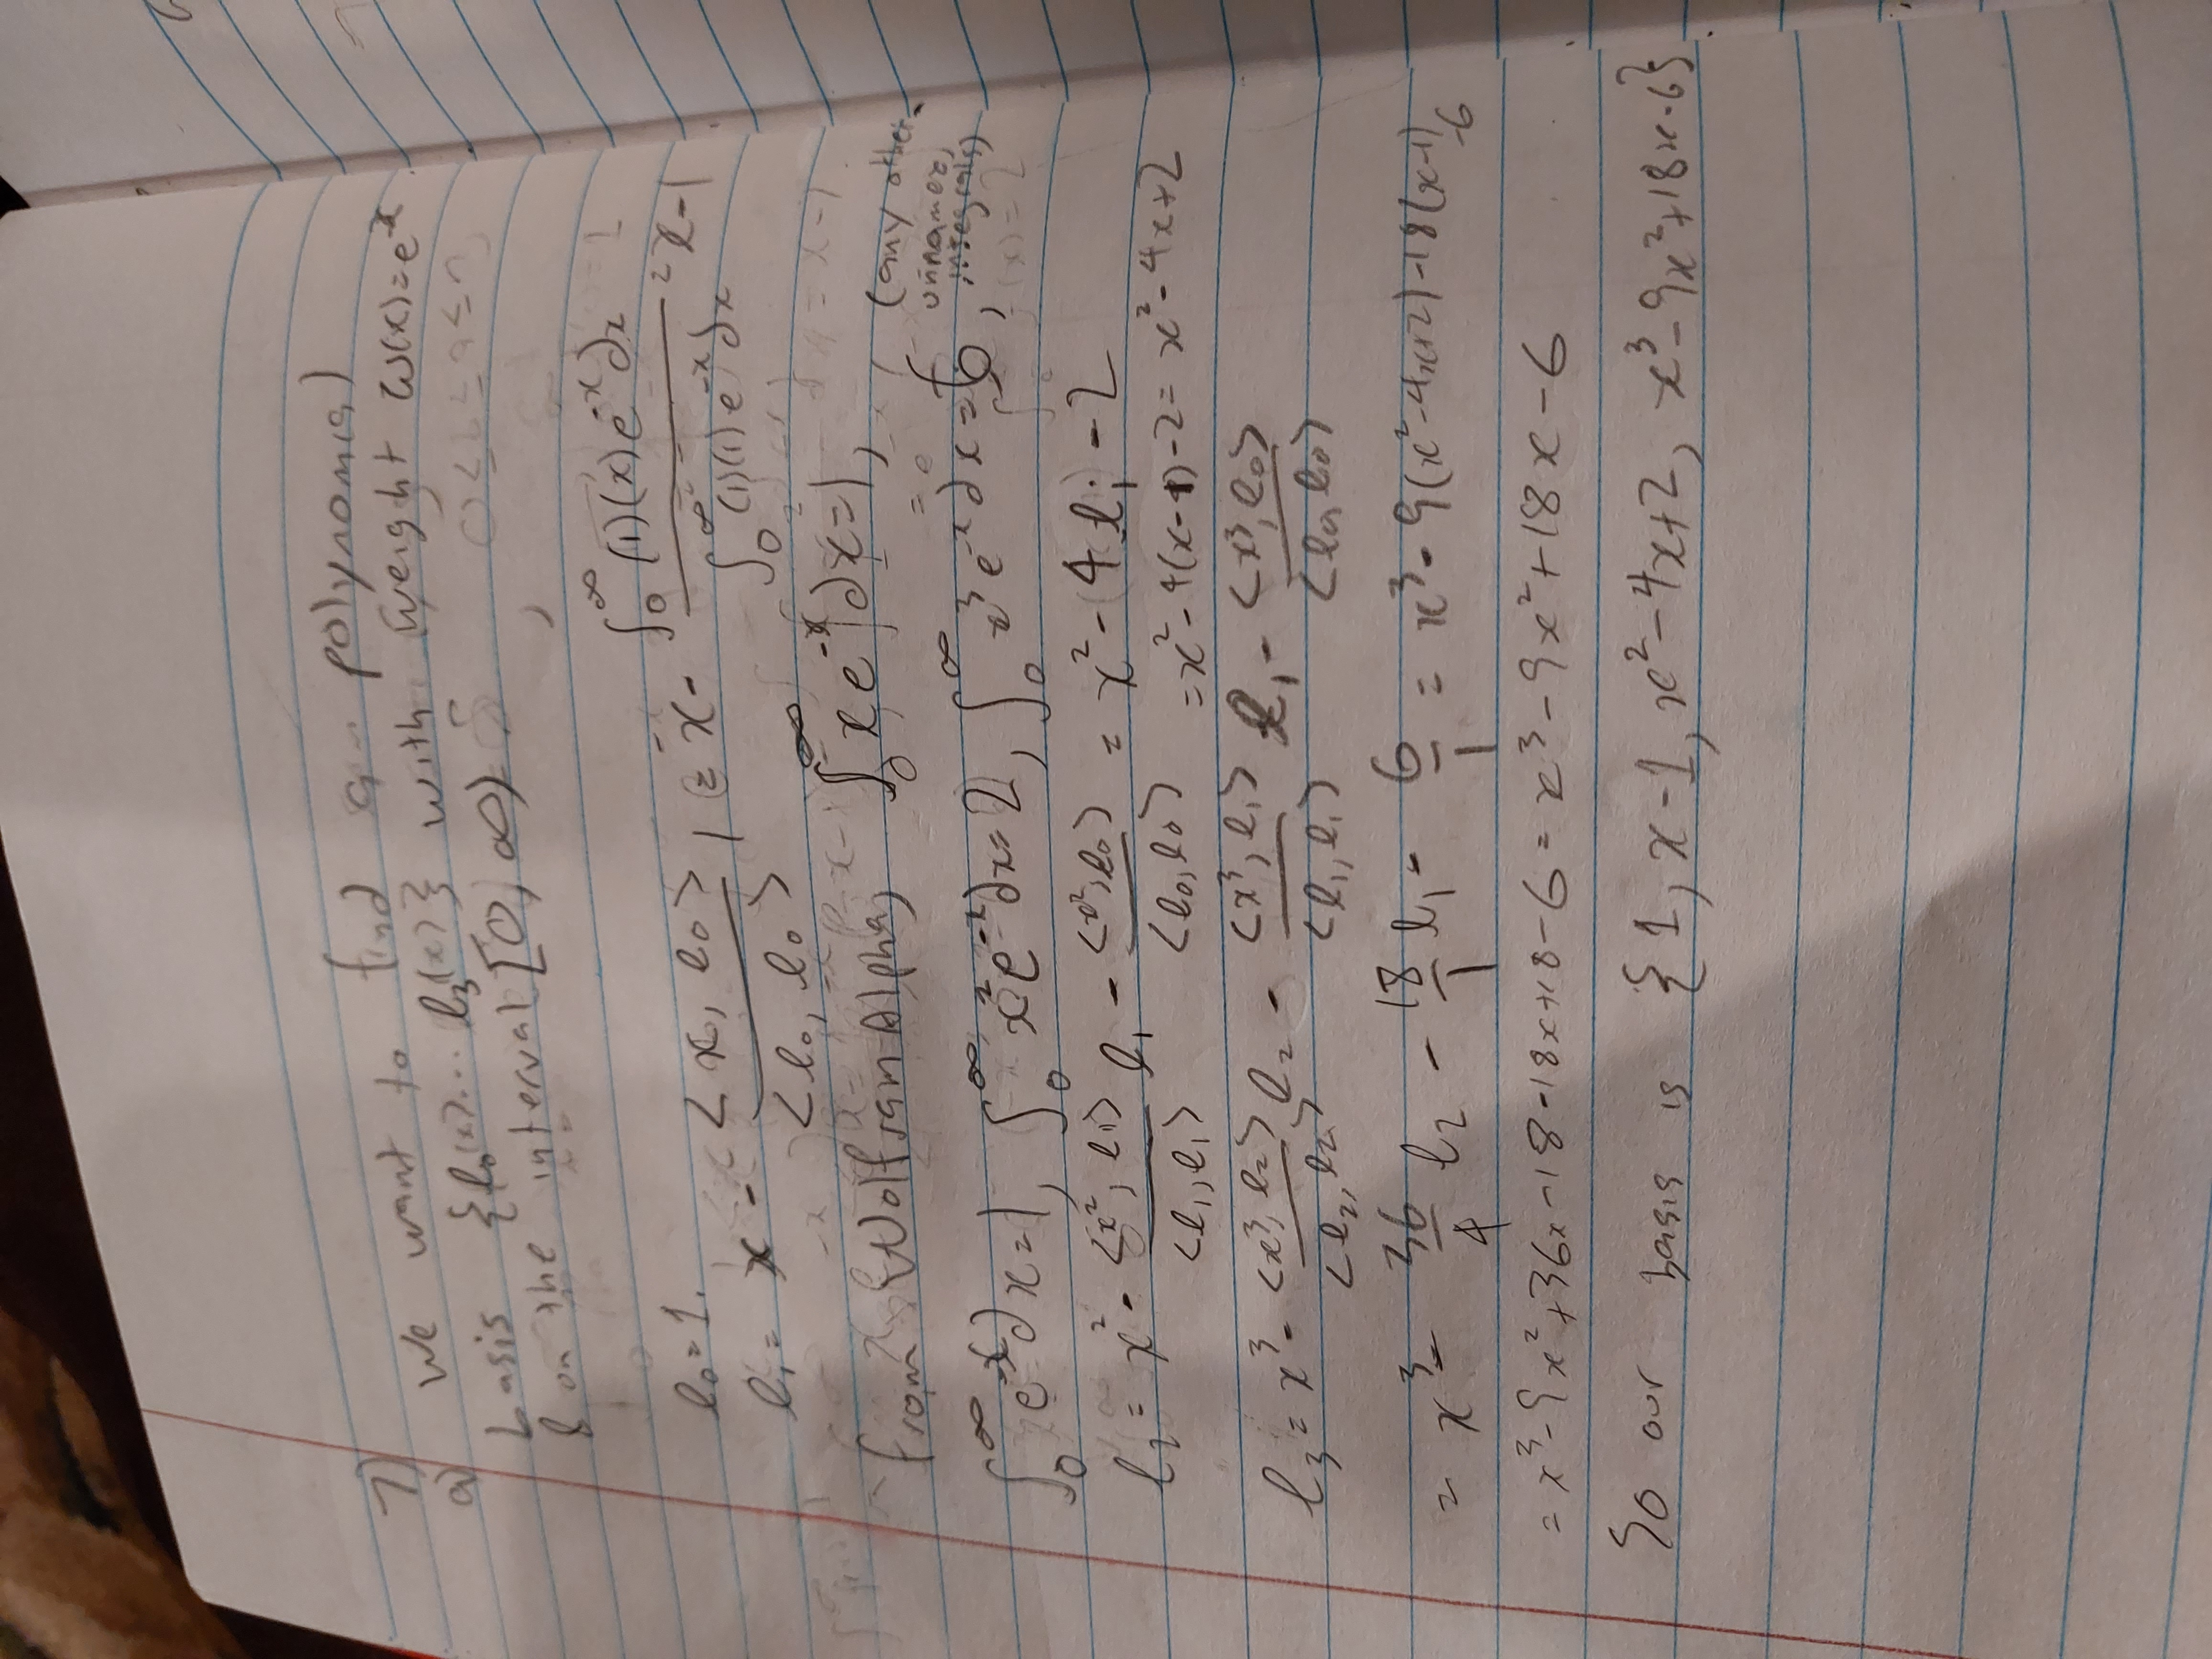 7)
a) We want to find a polynomial
basis {l₀(x)... l₃(x)} with weight ω(x)=e^-x
& on the interval [0, ∞)
l₀=1.
l₁= x - <x, l₀> / <l₀, l₀> 1 = x - ∫₀^∞ (1)(x)e^-x dx / ∫₀^∞ (1)(1)e^-x dx = x-1
from WolframAlpha, ∫₀^∞ xe^-x dx=1, (any other unnamed integrals)
∫₀^∞ e^-x dx=1, ∫₀^∞ x²e^-x dx=2, ∫₀^∞ x³e^-x dx=6,
l₂= x² - <x², l₁> / <l₁, l₁> l₁ - <x², l₀> / <l₀, l₀> = x² - 4l₁ - 2
= x² - 4(x-1) - 2 = x² - 4x+2
l₃= x³ - <x³, l₂> / <l₂, l₂> l₂ - <x³, l₁> / <l₁, l₁> l₁ - <x³, l₀> / <l₀, l₀>
= x³ - 36/4 l₂ - 18/1 l₁ - 6/1 = x³ - 9(x²-4x+2) - 18(x-1) -6
= x³-9x²+36x-18-18x+18-6 = x³-9x²+18x-6
So our basis is {1, x-1, x²-4x+2, x³-9x²+18x-6}